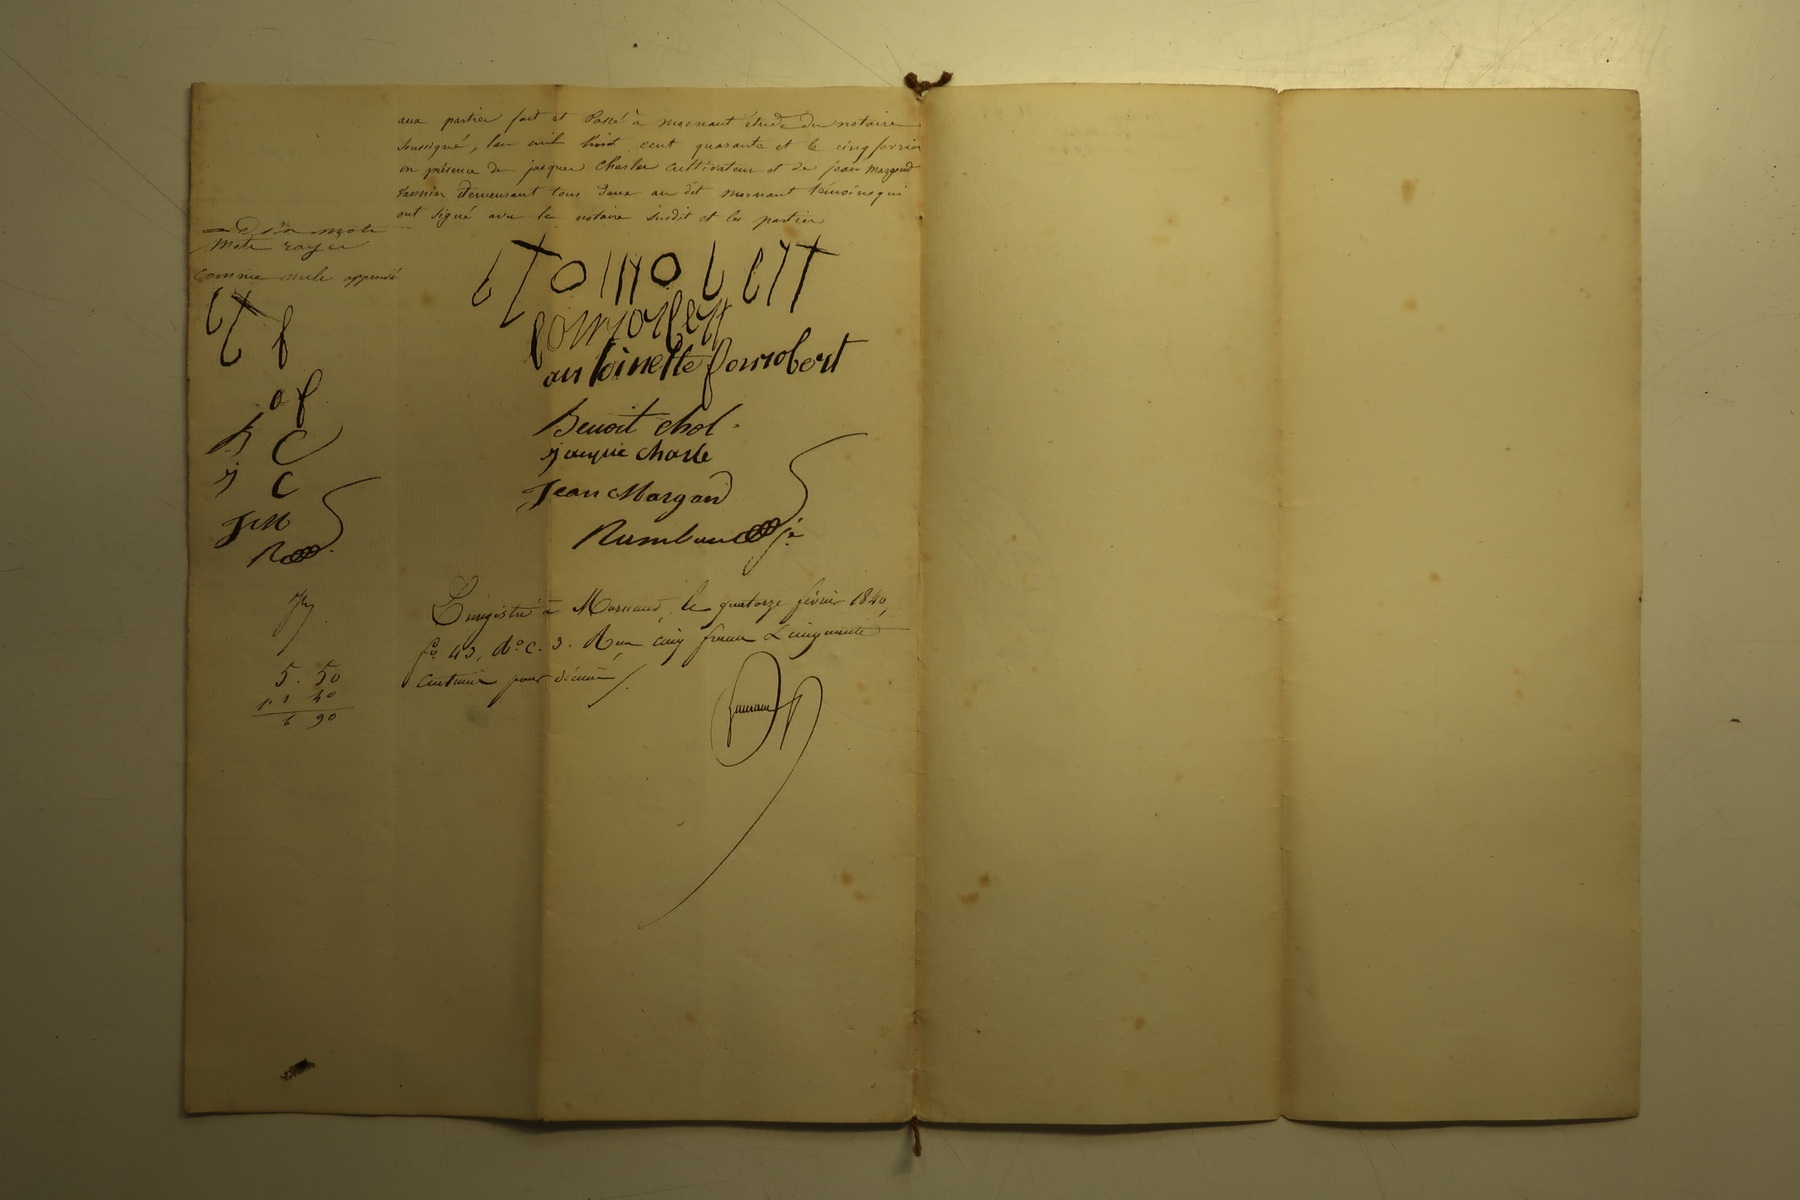 aux parties fait et Passé à mornant étude du notaire
soussigné, l'an mil huit cent quarante et le cinq fevrier
en présence de jacques Charles cultivateur et de jean margand
demeurant tous deux au dit mornant témoins qui
ont signé avec le notaire susdit et les parties
mots rayer
comme nuls approuvé
fonrobert
antoinette fonrobert
a f
Benoit chol
B C
jacque charle
j C
Jean Margand
J M
Enregistré à Mornant, le quatorze février 1840,
fo. 43, Ro. C. 3. Reçu cinq francs Cinquante
5. 50
centimes pour décime
1. 40
6 90